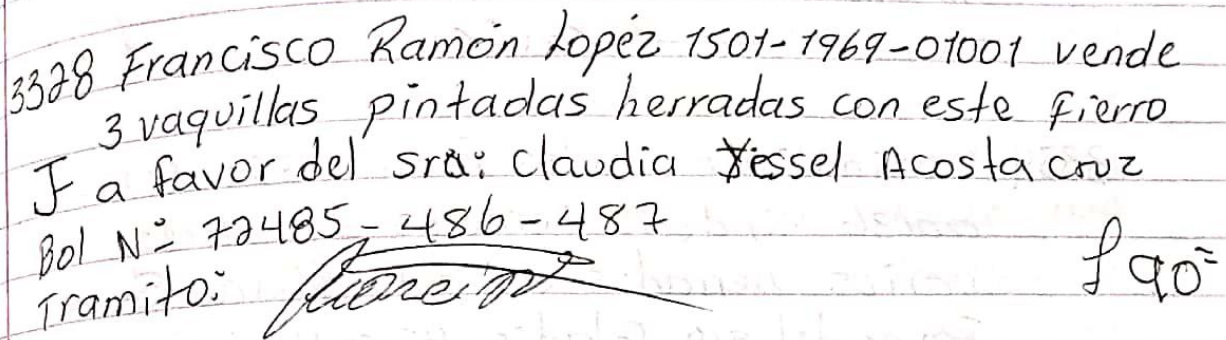 3328 Francisco Ramón Lopéz 1501-1969-01001 vende
3 vaquillas pintadas herradas con este fierro
J a favor del sra: Claudia Yessel Acosta Cruz
Bol Nº 72485-486-487
Tramito:
L 90=